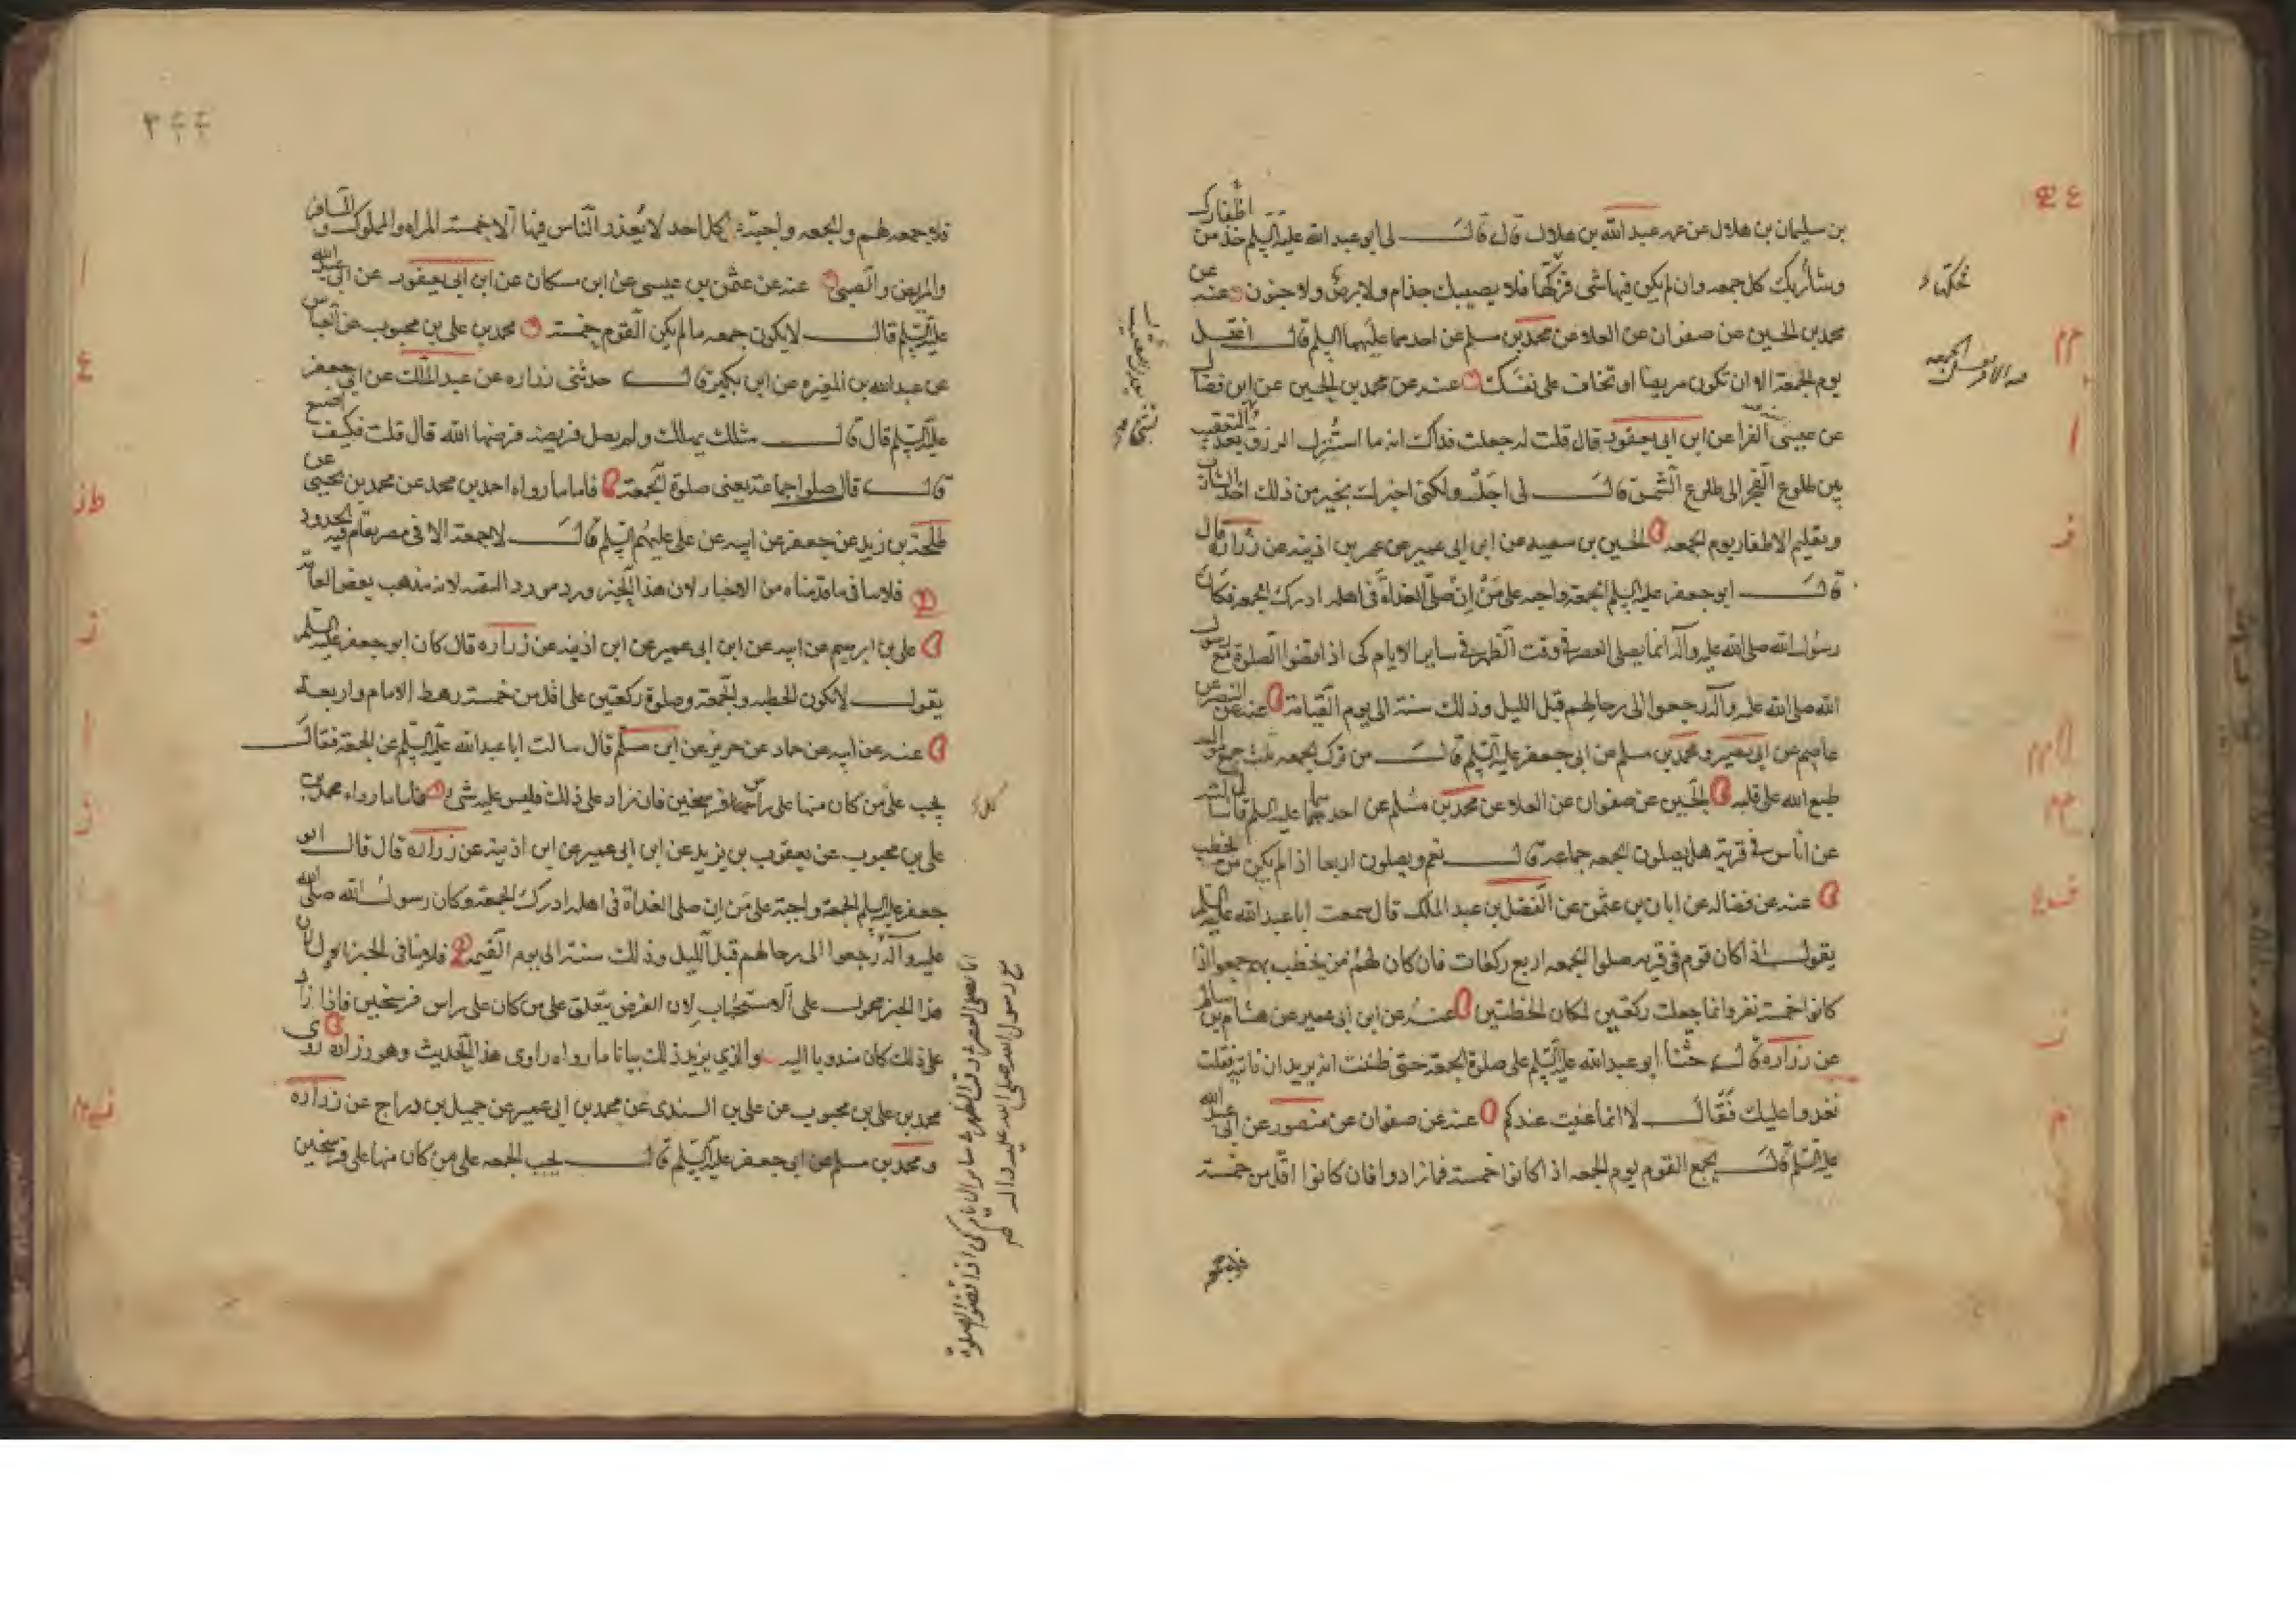 بن سليمان بن هلال عن عمه عبد الله بن هلال قال قال لى ابو عبد الله عليه السلم خذ من اظفارك
وشاربك كل جمعه وان لم يكن فيها شى فزكها فلا يصيبك جذام ولا برص ولا جنون عنه عن
محمد بن الحسين عن صفوان عن العلا عن محمد بن مسلم عن احدهما عليهما السلم قال اغتسل
يوم الجمعة الا ان تكون مريضا او تخاف على نفسك عنه عن محمد بن الحسين عن ابن فضال
عن عيسى الفرا عن ابن ابى يعفور قال قلت له جعلت فداك انه ما استنزل الرزق بعد التعقيب
بين طلوع الفجر الى طلوع الشمس قال لى اجل ولكنى اخبرك بخير من ذلك اخذ الشارب
وتقليم الاظفار يوم الجمعه الحسين بن سعيد عن ابن ابى عمير عن عمر بن اذينه عن زراره قال
قال ابو جعفر عليه السلم الجمعة واجبه على من ان صلى الغداة فى اهله ادرك الجمعه وكان
رسول الله صلى الله عليه وآله انما يصلى العصر فى وقت الظهر فى ساير الايام كى اذا قضوا الصلوة مع رسول
الله صلى الله عليه وآله رجعوا الى رحالهم قبل الليل وذلك سنة الى يوم القيامة عنه عن النضر عن
عاصم عن ابى بصير ومحمد بن مسلم عن ابى جعفر عليه السلم قال من ترك الجمعه ثلث جمع متواليه
طبع الله على قلبه الحسين عن صفوان عن العلا عن محمد بن مسلم عن احدهما عليه السلم قال سالته
عن اناس فى قرية هل يصلون الجمعه جماعة قال نعم ويصلون اربعا اذا لم يكن من يخطب
عنه عن فضاله عن ابان بن عثمن عن الفضل بن عبد الملك قال سمعت ابا عبد الله عليه السلم
يقول اذا كان قوم فى قريه صلوا الجمعه اربع ركعات فان كان لهم من يخطب بهم جمعوا اذا
كانوا خمسة نفر وانما جعلت ركعتين لمكان الخطبتين عنه عن ابن ابى عمير عن هشام بن سالم
عن زراره قال حثنا ابو عبد الله عليه السلم على صلوة الجمعة حتى ظننت انه يريد ان ناتيه فقلت
نغدوا عليك فقال لا انما عنيت عندكم عنه عن صفوان عن منصور عن ابى عبد الله
عليه السلم قال يجمع القوم يوم الجمعه اذا كانوا خمسة فما زادوا فان كانوا اقل من خمسة
فلا جمعه لهم والجمعه واجبة على كل احد لا يعذر الناس فيها الا خمسة المراه والمملوك والمسافر
والمريض والصبى عنه عن عثمن بن عيسى عن ابن مسكان عن ابن ابى يعفور عن ابى عبد الله
عليه السلم قال لا يكون جمعه ما لم يكن القوم خمسة محمد بن على بن محبوب عن العباس
عن عبد الله بن المغيره عن ابن بكير قال حدثنى زراره عن عبد الملك عن ابى جعفر
عليه السلم قال قال مثلك يهلك ولم يصل فريضة فرضها الله قال قلت فكيف اصنع
قال قال صلوا جماعة يعنى صلوة الجمعة فاما ما رواه احمد بن محمد عن محمد بن يحيى عن
طلحة بن زيد عن جعفر عن ابيه عن على عليهم السلم قال لا جمعة الا فى مصر يقام فيه الحدود
فلا ينافى ما قدمناه من الاخبار لان هذا الخبر ورد مورد التقيه لانه مذهب بعض العامه
على بن ابرهيم عن ابيه عن ابن ابى عمير عن ابن اذينه عن زراره قال كان ابو جعفر عليه السلم
يقول لا تكون الخطبه والجمعة وصلوة ركعتين على اقل من خمسة رهط الامام واربعة
عنه عن ابيه عن حماد عن حريز عن ابن مسلم قال سالت ابا عبد الله عليه السلم عن الجمعة فقال
يجب على من كان منها على راس فرسخين فان زاد على ذلك فليس عليه شى فاما ما رواه محمد بن
على بن محبوب عن يعقوب بن يزيد عن ابن ابى عمير عن ابن اذينة عن زراره قال قال ابو
جعفر عليه السلم الجمعة واجبة على من ان صلى الغداة فى اهله ادرك الجمعة وكان رسول الله صلى الله
عليه وآله رجعوا الى رحالهم قبل الليل وذلك سنة الى يوم القيمة فلا ينافى الخبر الاول لان
هذا الخبر محمول على الاستحباب لان الفرض يتعلق على من كان على راس فرسخين فاذا زاد
على ذلك كان مندوبا اليه والذى يزيد ذلك بيانا ما رواه راوى هذا الحديث وهو زراره روى
محمد بن على بن محبوب عن على بن السندى عن محمد بن ابى عمير عن جميل بن دراج عن زراره
ومحمد بن مسلم عن ابى جعفر عليه السلم قال يجب الجمعه على من كان منها على فرسخين
انما يصلى العصر فى وقت الظهر فى ساير الايام كى اذا قضوا الصلوة
مع رسول الله صلى الله عليه وآله